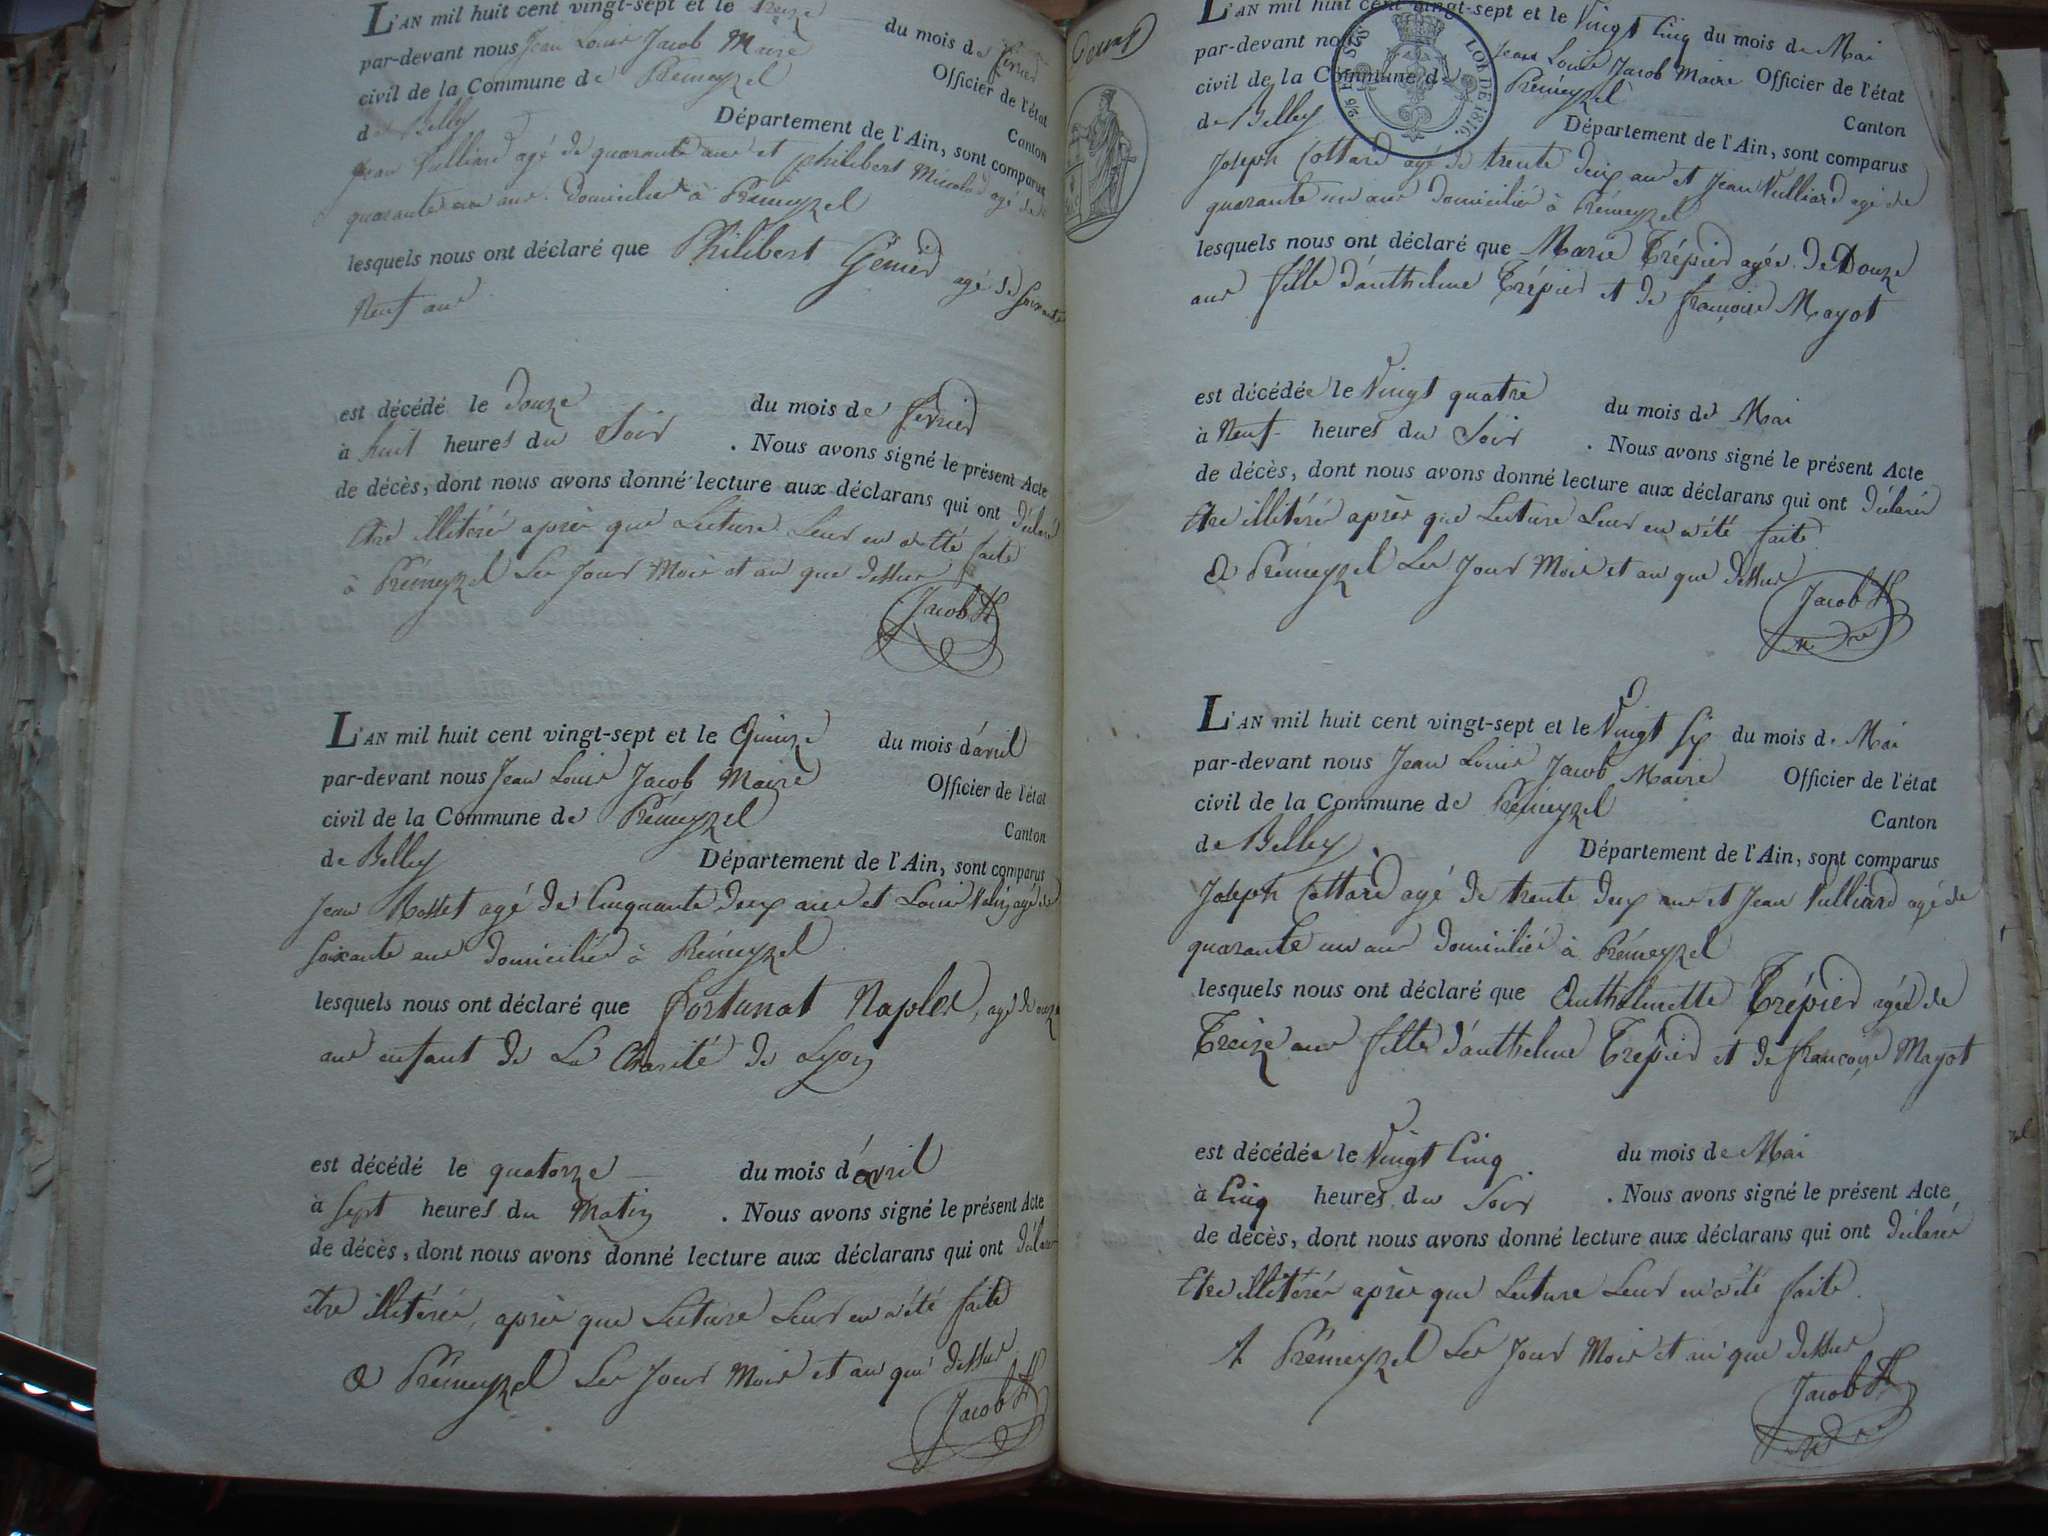 L'AN mil huit cent vingt-sept et le treize du mois de février
par-devant nous Jean Louis Jacob Maire Officier de l'état
civil de la Commune de Prémeyzel Canton
de Belley Département de l'Ain, sont comparus
Jean Vulliard agé de quarante ans et philibert agé de
quarante ans Domiciliés à Prémeyzel
lesquels nous ont déclaré que Philibert Genier agé de soixante
Neuf ans
est décédé le Douze du mois de février
à huit heures du Soir . Nous avons signé le présent Acte
de décès, dont nous avons donné lecture aux déclarans qui ont déclaré
etre illitéré après que Lecture Leur en a été faite
à Prémeyzel Les Jour Mois et an que dessus
Jacob
L'AN mil huit cent vingt-sept et le Quinze du mois d'avril
par-devant nous Jean Louis Jacob Maire Officier de l'état
civil de la Commune de Prémeyzel Canton
de Belley Département de l'Ain, sont comparus
Jean Rosset agé de Cinquante deux ans et Louis agé de
soixante ans Domiciliés à Prémeyzel
lesquels nous ont déclaré que Fortunat Naples, agé de onze
ans enfant de La Charité de Lyon
est décédé le quatorze du mois d'avril
à Sept heures du Matin . Nous avons signé le présent Acte
de décès, dont nous avons donné lecture aux déclarans qui ont déclaré
etre illitérés, après que Lecture Leur en a été faite
à Prémeyzel Les Jour Mois et an que dessus
Jacob
LOI DE 1816.
L'AN mil huit cent vingt-sept et le Vingt Cinq du mois de Mai
par-devant nous Jean Louis Jacob Maire Officier de l'état
civil de la Commune de Prémeyzel Canton
de Belley Département de l'Ain, sont comparus
Joseph Cottard agé de trente deux ans et Jean Vulliard agé de
quarante un ans Domiciliés à Prémeyzel
lesquels nous ont déclaré que Marie Trépier agée de Douze
ans fille d'anthelme Trépier et de françoise Mayot
est décédée le Vingt quatre du mois de Mai
à Neuf heures du Soir . Nous avons signé le présent Acte
de décès, dont nous avons donné lecture aux déclarans qui ont déclaré
Etre illitérés après que Lecture Leur en a été faite
A Prémeyzel Les Jour Mois et an que dessus
Jacob
L'AN mil huit cent vingt-sept et le Vingt Six du mois de Mai
par-devant nous Jean Louis Jacob Maire Officier de l'état
civil de la Commune de Prémeyzel Canton
de Belley Département de l'Ain, sont comparus
Joseph Cottard agé de trente deux ans et Jean Vulliard agé de
quarante un ans Domiciliés à Prémeyzel
lesquels nous ont déclaré que Anthelmette Trépier agée de
Treize ans fille d'anthelme Trépier et de françoise Mayot
est décédée le Vingt Cinq du mois de Mai
à Cinq heures du Soir . Nous avons signé le présent Acte
de décès, dont nous avons donné lecture aux déclarans qui ont déclaré
Etre illitérés après que Lecture Leur en a été faite
A Prémeyzel Les Jour Mois et an que dessus
Jacob